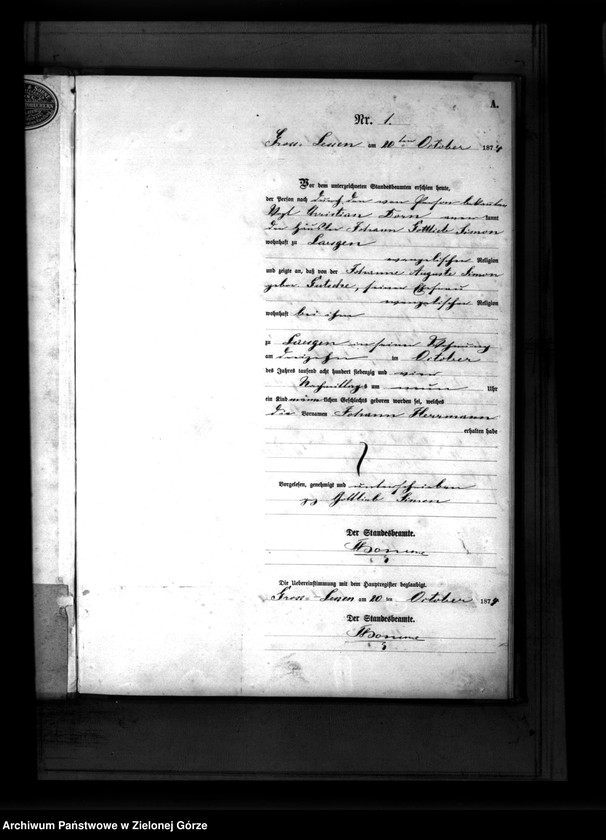 A.
Nr. 1.
Gross-Lessen am 20ten October 1874
Vor dem unterzeichneten Standesbeamten erschien heute,
der Person nach durch den von Person bekannten
Vogt Christian Dorn aner kannt
der Häusler Johann Gottlieb Simon
wohnhaft zu Laesgen
evangelischer Religion
und zeigte an, daß von der Johanne Auguste Simon
geborne, seiner Ehefrau
evangelischer Religion
wohnhaft bei ihm
zu Laesgen in seiner Wohnung
am dreizehn ten October
des Jahres tausend acht hundert siebenzig und vier
Nachmittags um neun Uhr
ein Kind männlichen Geschlechts geboren worden sei, welches
die Vornamen Johann Herrmann
erhalten habe
Vorgelesen, genehmigt und unterschrieben
Gottlieb Simon
Der Standesbeamte.
Die Uebereinstimmung mit dem Hauptregister beglaubigt.
Gross-Lessen am 20 ten October 1874
Der Standesbeamte.
Archiwum Państwowe w Zielonej Górze